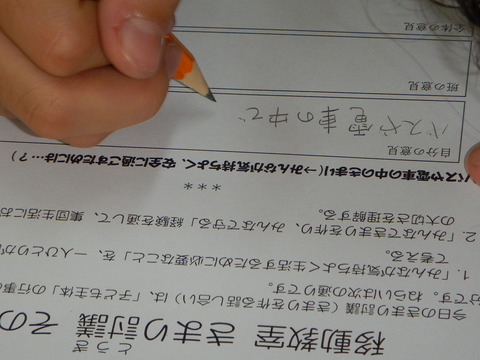 とう ぎ
移動教室 きまり討議 その
今日のきまり討議（きまりを作る話し合い）は、「子ども主体」の行事
分です。ねらいは次の通りです。
1. 「みんなが気持ちよく生活するために必要なこと」を、一人ひとりが
て考える。
2. 「みんなできまりを作り、みんなで守る」経験を通して、集団生活にお
の大切さを理解する。
＊＊＊
バスや電車の中のきまり（→みんなが気持ちよく、安全に過ごすためには…？）
自分の意見
バスや電車の中で
班の意見
全体の意見